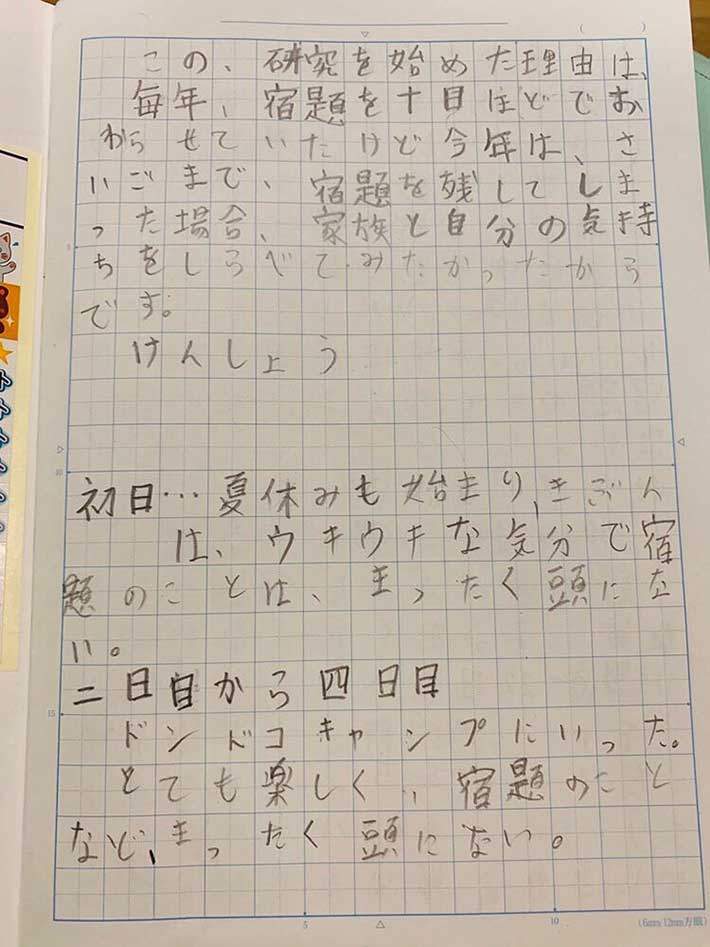 この、研究を始めた理由は、
毎年、宿題を十日ほどでお
わらせていたけど今年は、さ
いごまで、宿題を残してしま
った場合、家族と自分の気持
ちをしらべてみたかったから
です。
けんしょう
初日…夏休みも始まり、きぶん
は、ウキウキな気分で宿
題のことは、まったく頭にな
い。
二日目から四日目
ドンドコキャンプにいった。
とても楽しく、宿題のこと
など、まったく頭にない。
5
10
15
5
10
(6mm 12mm方眼)